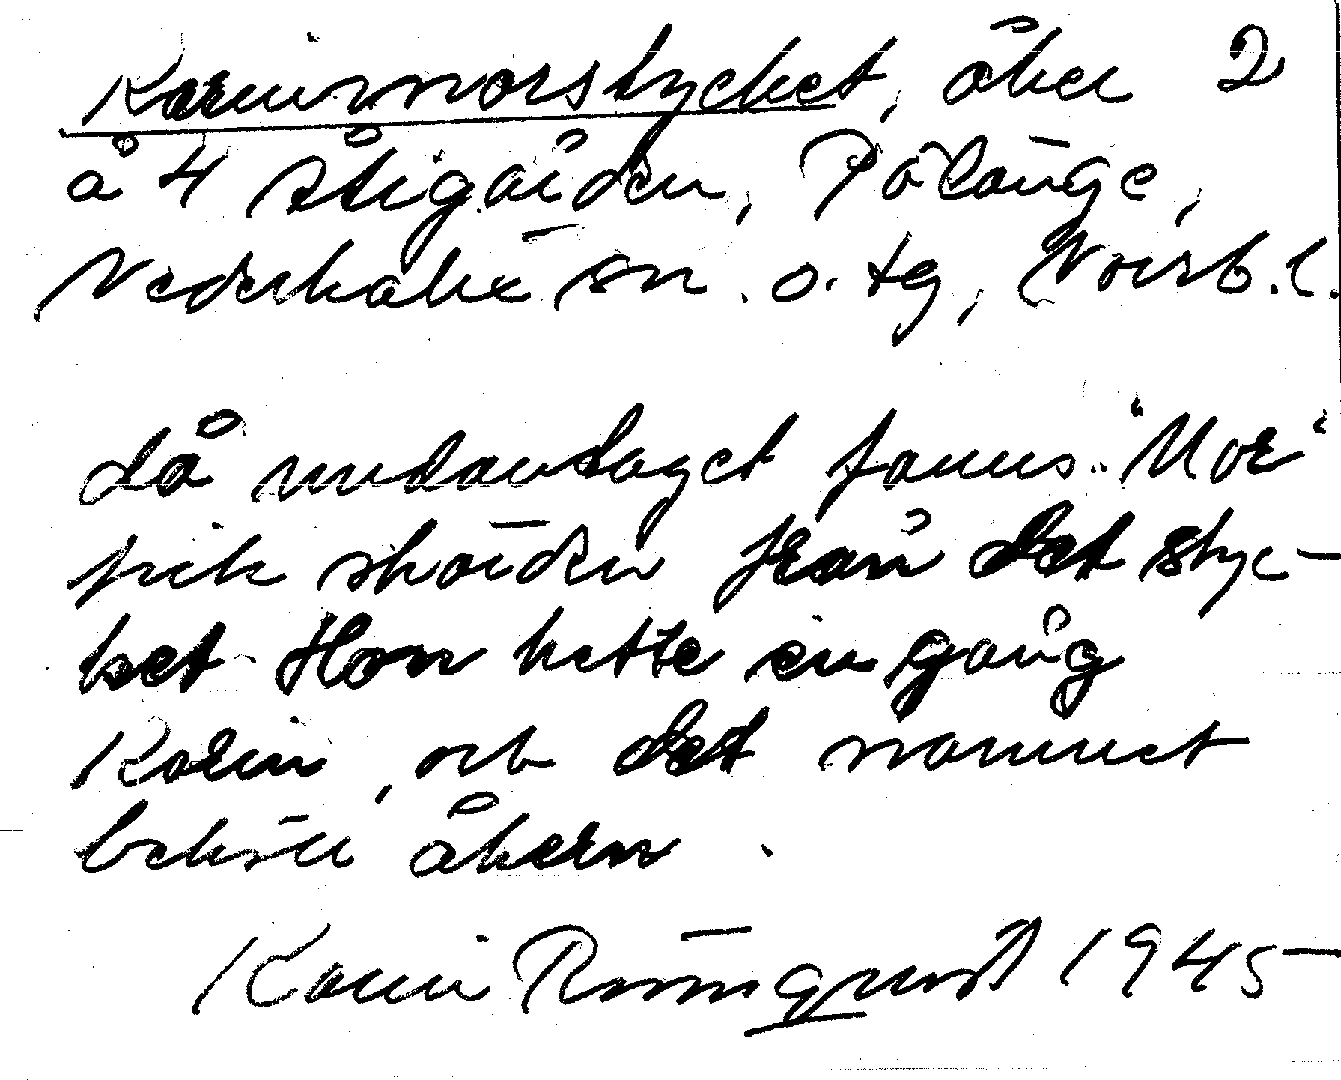 Karinmorstycket, åker 2
å 4 Stigården, Pålänge,
Nederkalix sn. o. tg, Norrb. l.
då undantaget fanns. "Mor"
fick skörden från det styc-
ket. Hon hette en gång
Karin, och det namnet
behöll åkern.
Karin Rönnqvist 1945